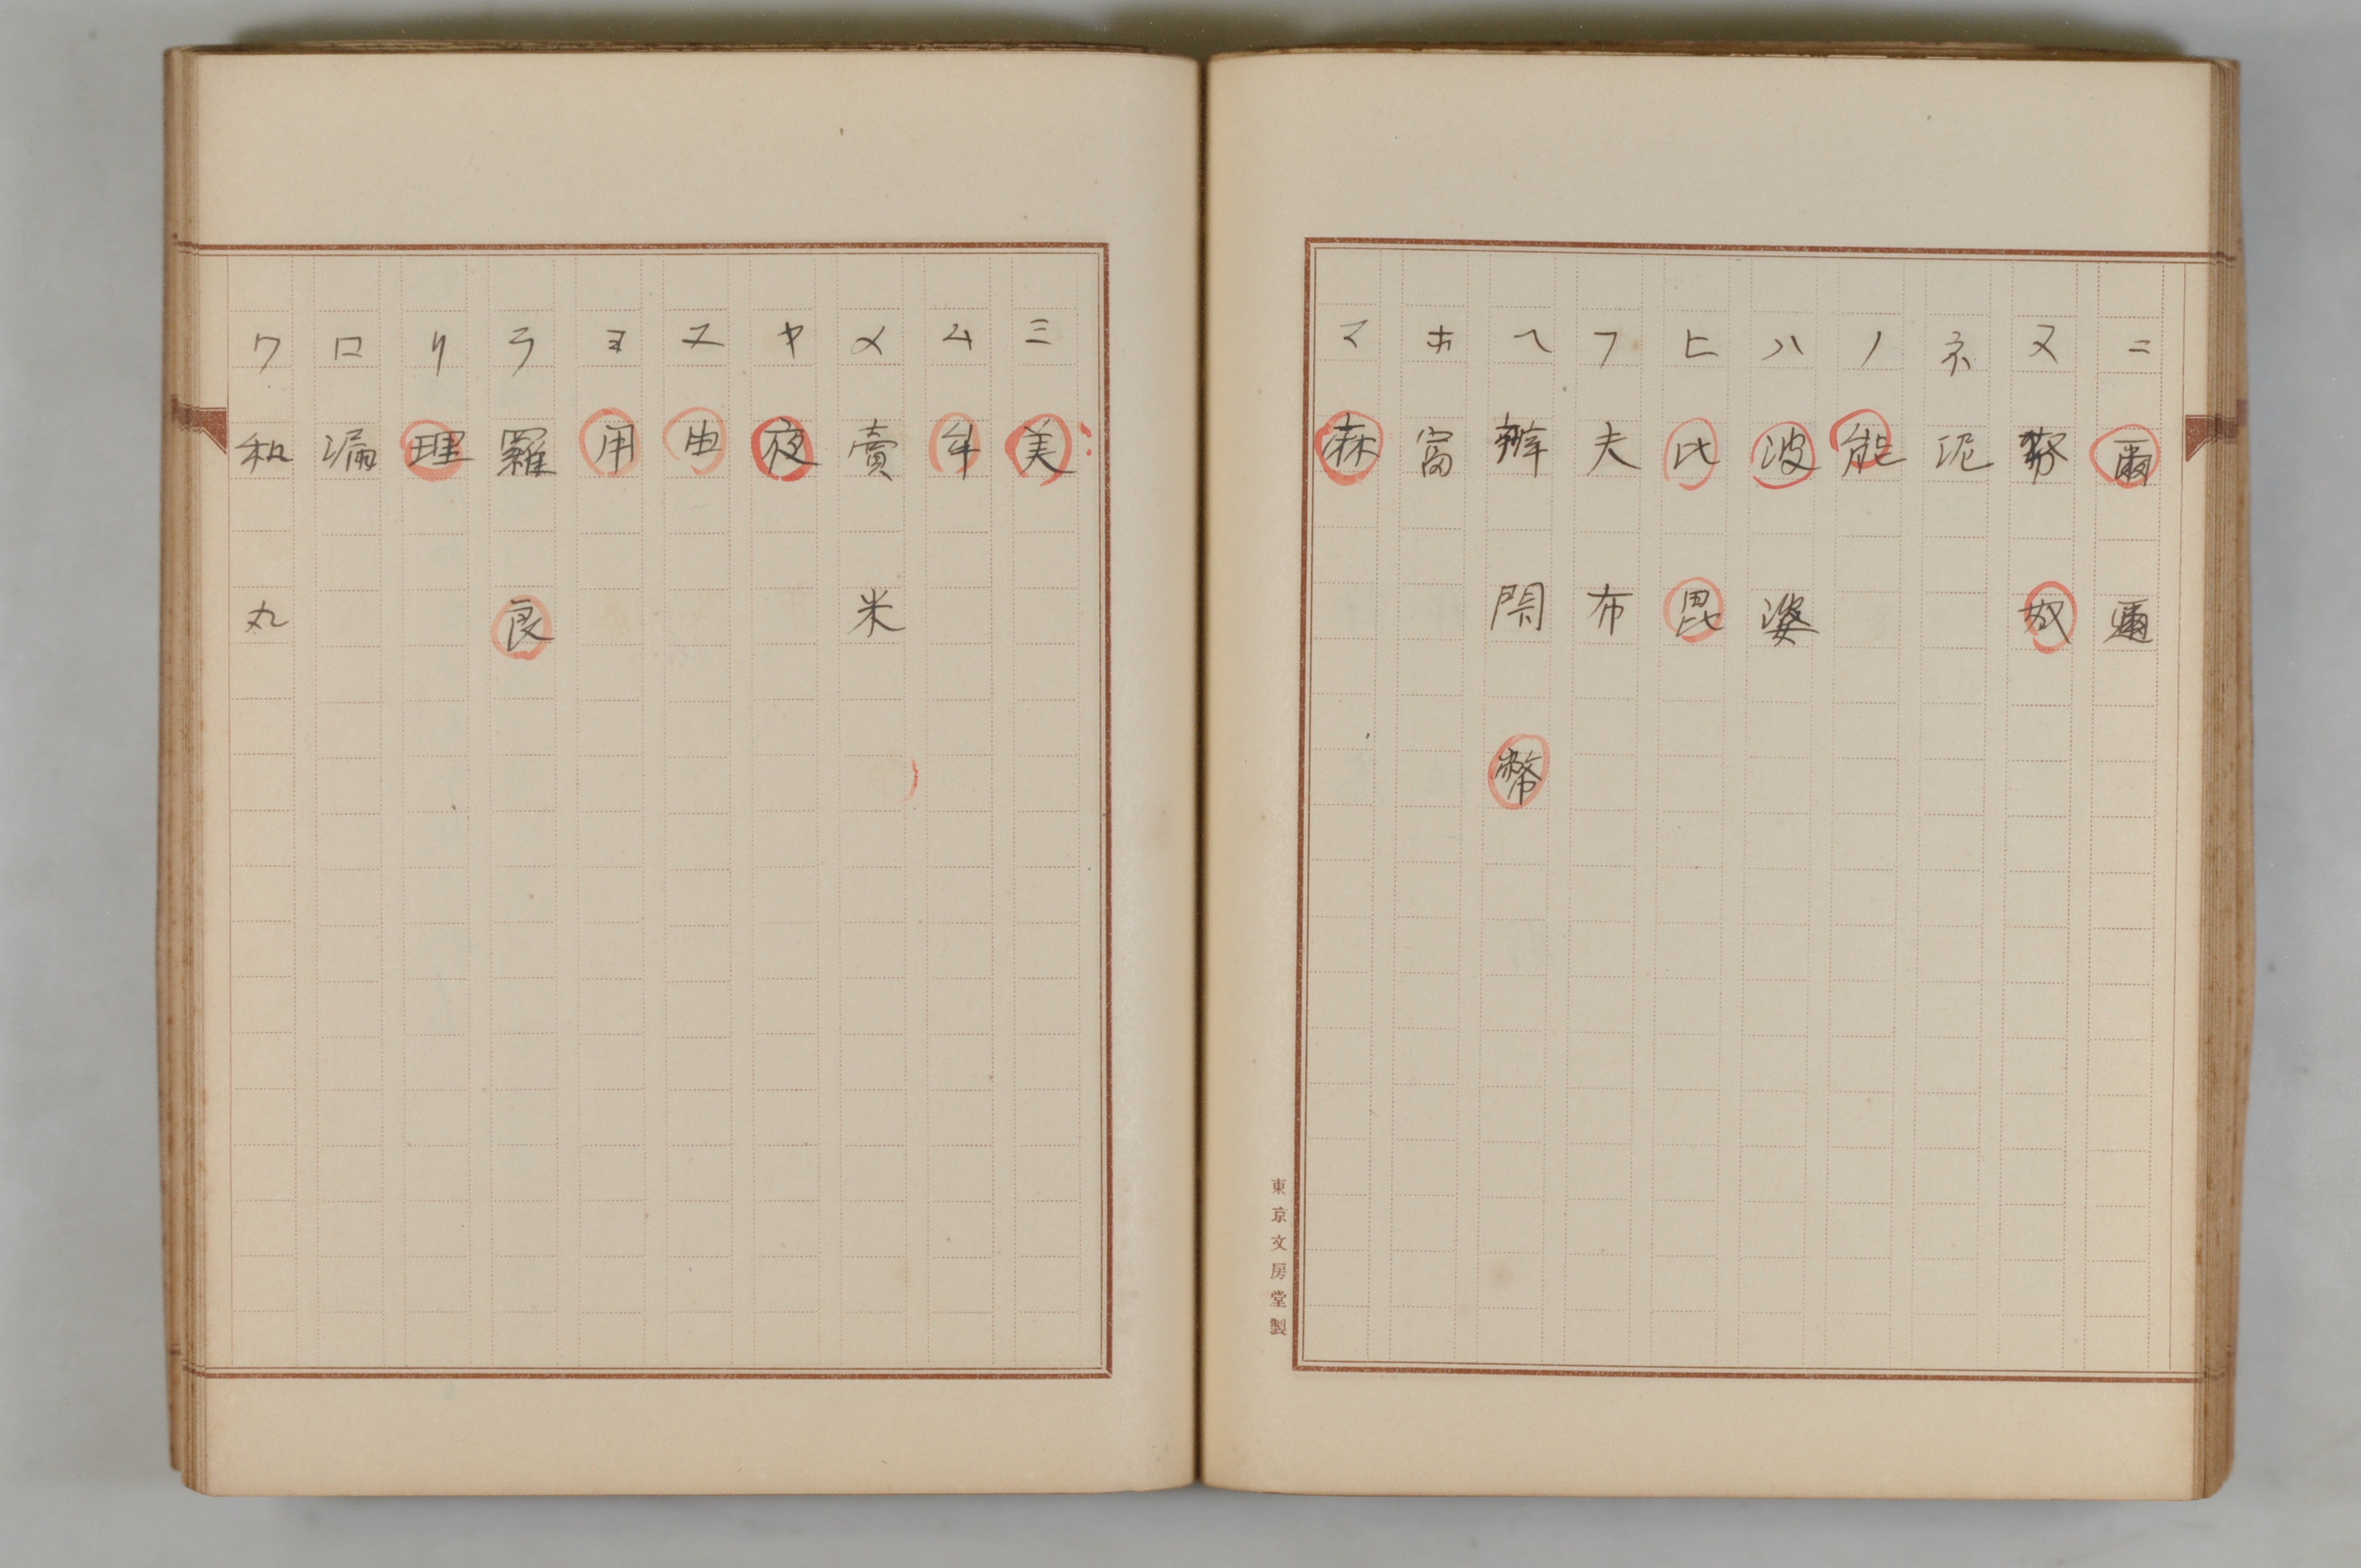 ニ 爾 邇
ヌ 努 奴
ネ 泥
ノ 能
ハ 波 婆
ヒ 比 毘
フ 夫 布
ヘ 辨 閇 幣
ホ 富
マ 麻
東京文房堂製
ミ 美
ム 牟
メ 賣 米
ヤ 夜
ユ 由
ヨ 用
ラ 羅 良
リ 理
ロ 漏
ワ 和 丸